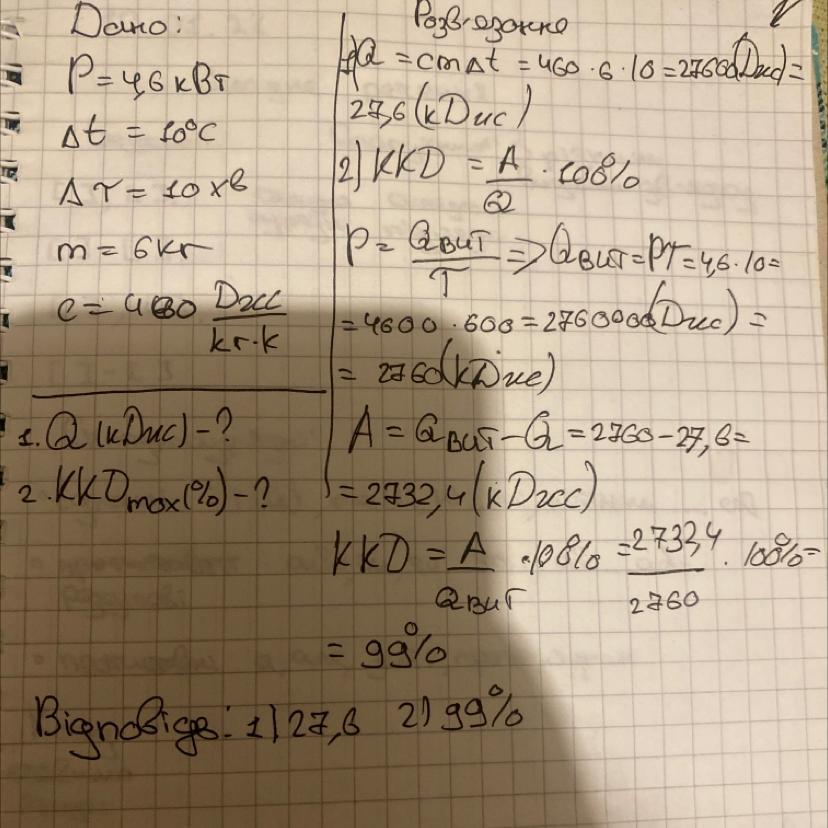 Дано:
P = 4,6 кВт
Δt = 10°C
Δτ = 10 хв
m = 6 кг
c = 460 Дж/кг·К
1. Q (кДж) - ?
2. KKDmax(%) - ?
Розв'язання
1) Q = cmΔt = 460 · 6 · 10 = 27600(Дж) =
27,6 (кДж)
2) KKD = A/Q · 100%
P = Qвит/T => Qвит = PT = 4,6 · 10 =
= 4600 · 600 = 2760000(Дж) =
= 2760(кДж)
A = Qвит - Q = 2760 - 27,6 =
= 2732,4 (кДж)
KKD = A/Qвит · 100% = 2732,4/2760 · 100% =
= 99%
Відповідь: 1) 27,6 2) 99%